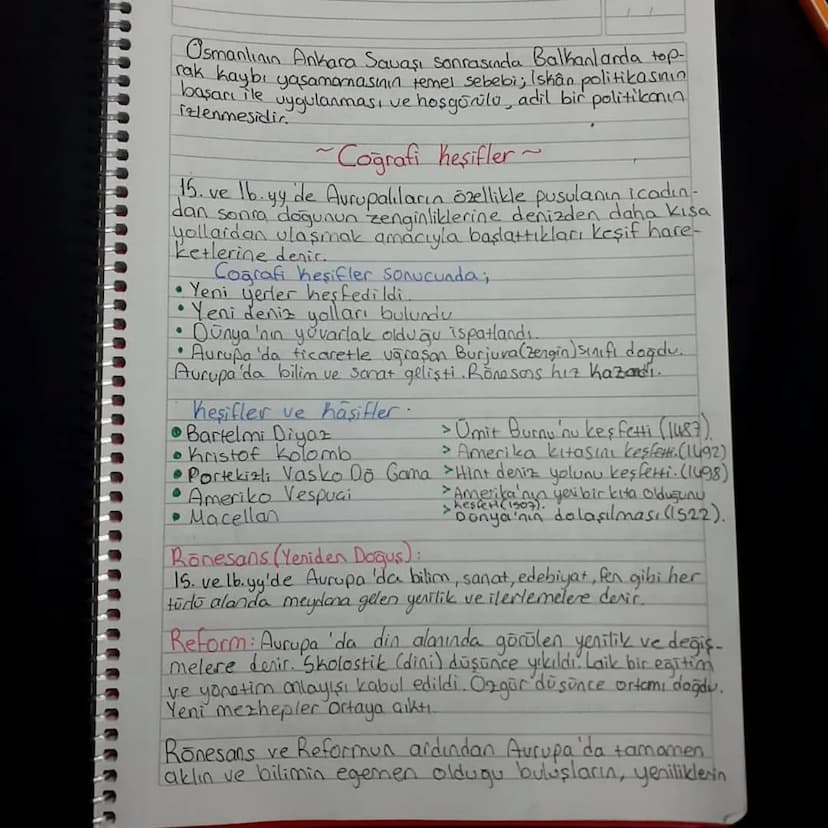 Osmanlının Ankara Savaşı sonrasında Balkanlarda top-
rak kaybı yaşamamasının temel sebebi; İskân politikasının
başarı ile uygulanması ve hoşgörülü, adil bir politikanın
izlenmesidir.
~Coğrafi Keşifler~
15. ve 16.yy'de Avrupalıların özellikle pusulanın icadın-
dan sonra doğunun zenginliklerine denizden daha kısa
yollardan ulaşmak amacıyla başlattıkları keşif hare-
ketlerine denir.
Coğrafi keşifler sonucunda;
• Yeni yerler keşfedildi.
• Yeni deniz yolları bulundu
• Dünya'nın yuvarlak olduğu ispatlandı.
• Avrupa'da ticaretle uğraşan Burjuva(zengin)sınıfı doğdu.
Avrupa'da bilim ve sanat gelişti. Rönesans hız kazandı.
Keşifler ve Kâşifler.
• Bartelmi Diyaz > Ümit Burnu'nu keşfetti (1487).
• Kristof Kolomb > Amerika kıtasını keşfetti.(1492)
• Portekizli Vasko Dö Gama > Hint deniz yolunu keşfetti.(1498)
• Ameriko Vespuci > Amerika'nın yeni bir kıta olduğunu
keşfetti (1507).
• Macellan > Dünya'nın dolaşılması(1522).
Rönesans (Yeniden Doğuş):
15. ve 16.yy'de Avrupa'da bilim, sanat, edebiyat, fen gibi her
türlü alanda meydana gelen yenilik ve ilerlemelere denir.
Reform: Avrupa'da din alanında görülen yenilik ve değiş-
melere denir. Skolostik (dini) düşünce yıkıldı. Laik bir eğitim
ve yönetim anlayışı kabul edildi. Özgür düşünce ortamı doğdu.
Yeni mezhepler ortaya çıktı.
Rönesans ve Reformun ardından Avrupa'da tamamen
aklın ve bilimin egemen olduğu buluşların, yeniliklerin